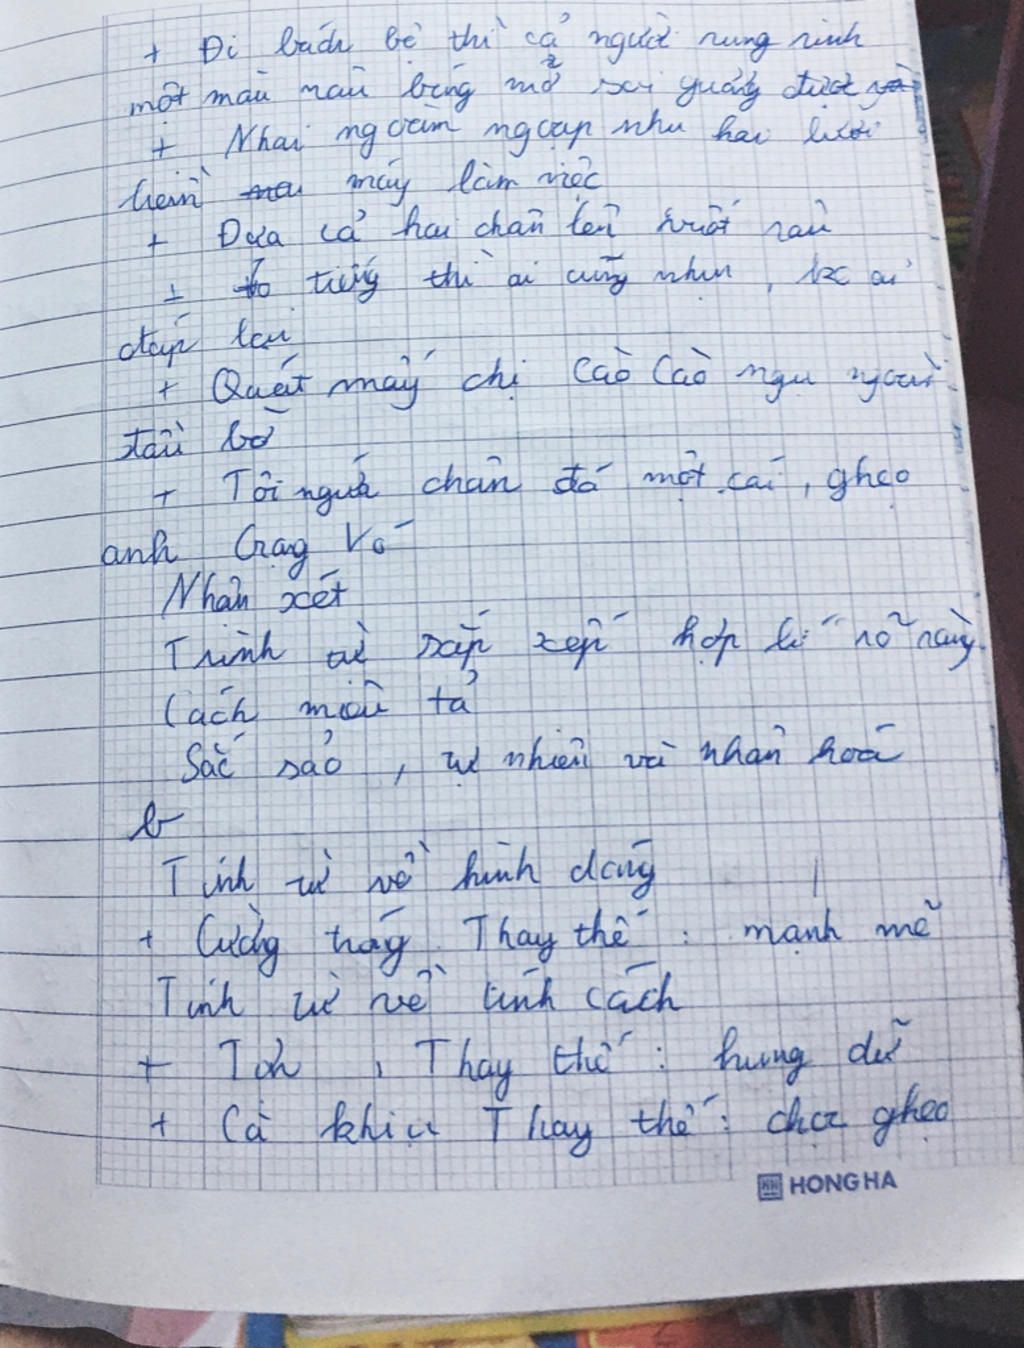 + Đi bách bộ thì cả người rung rinh
một màu nâu bóng mỡ soi gương được
+ Nhai ngoàm ngoạp như hai lưỡi
liềm máy làm việc
+ Đưa cả hai chân lên vuốt râu
+ to tiếng thì ai cũng nhịn, ko ai
đáp lại
+ Quát mấy chị Cào Cào ngụ ngoài
đầu bờ
+ Tôi ngứa chân đá một cái, ghẹo
anh Gọng Vó
Nhận xét
Trình tự sắp xếp hợp lí rõ ràng
Cách miêu tả
Sắc sảo, tự nhiên và nhân hoá
b
Tính từ về hình dáng
+ Cường tráng Thay thế: mạnh mẽ
Tính từ về tính cách
+ Tợn, Thay thế: hung dữ
+ Cà khịa Thay thế: chọc ghẹo
HONG HA